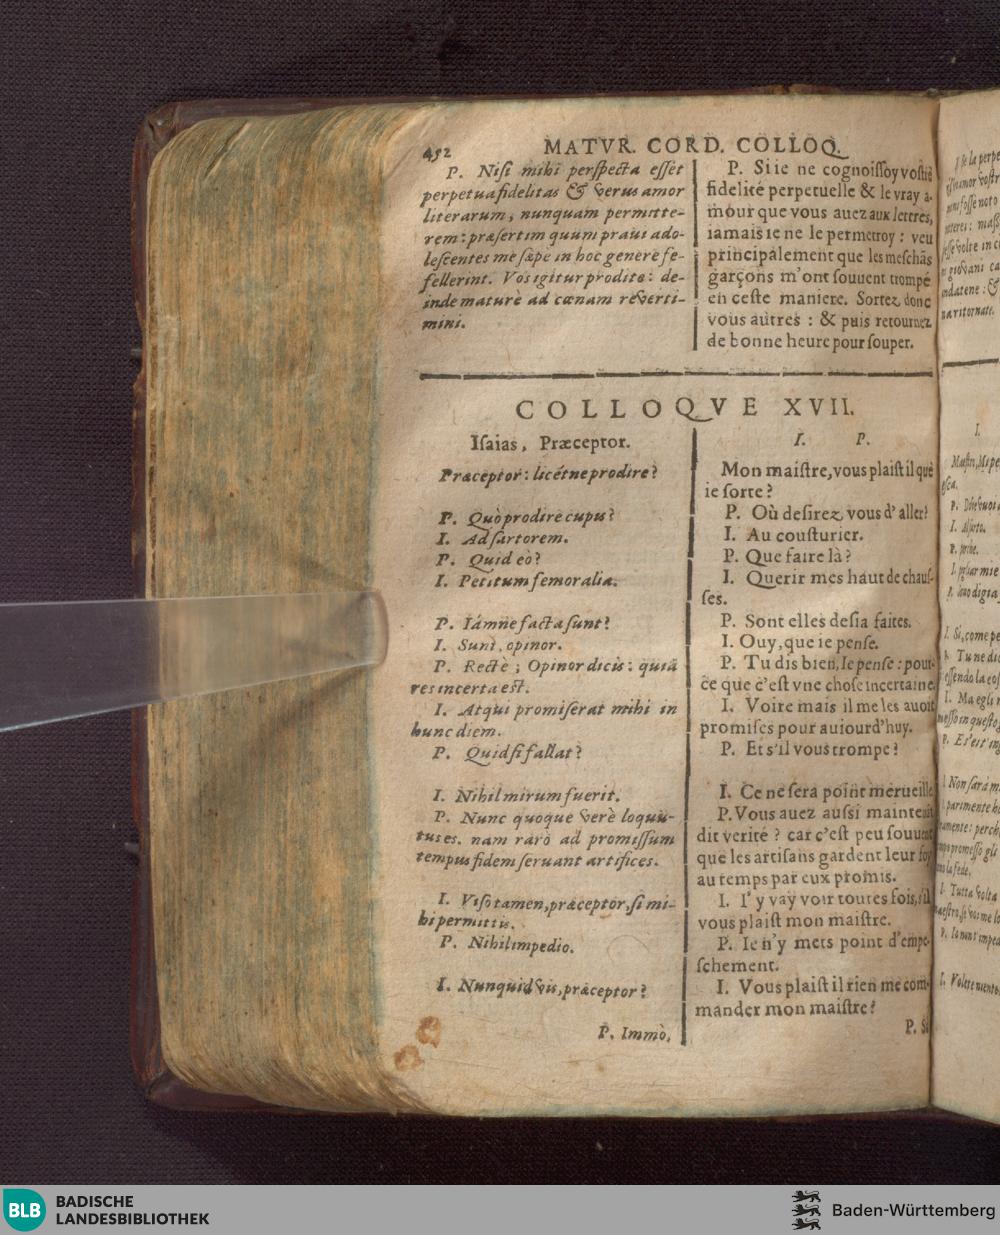 452
MATVR. CORD. COLLOQ.
P. Nisi mihi perspecta esset
perpetua fidelitas & verus amor
literarum, nunquam permitte-
rem: præsertim quum praui ado-
lescentes me sæpe in hoc genere fe-
fellerint. Vos igitur prodite: de-
inde maturè ad cœnam reverti-
mini.
P. Si ie ne cognoissoy vostre
fidelité perpetuelle & le vray a-
mour que vous auez aux lettres,
iamais ie ne le permetroy: veu
principalement que les meschās
garçons m'ont souuent trompé
en ceste maniere. Sortez donc
vous autres : & puis retournez
de bonne heure pour souper.
COLLOQVE XVII.
Isaias, Præceptor.
Præceptor: licétne prodire?
P. Quò prodire cupis?
I. Ad sartorem.
P. Quid eò?
I. Petitum femoralia.
P. Iámne facta sunt?
I. Sunt, opinor.
P. Rectè; Opinor dicis: quia
res incerta est.
I. Atqui promiserat mihi in
hunc diem.
P. Quid si fallat?
I. Nihil mirum fuerit.
P. Nunc quoque verè loquu-
tus es. nam rarò ad promissum
tempus fidem seruant artifices.
I. Viso tamen, præceptor, si mi-
hi permittis.
P. Nihil impedio.
I. Nunquid vis, præceptor?
P. Immò,
I. P.
Mon maistre, vous plaist il que
ie sorte?
P. Où desirez vous d'aller?
I. Au cousturier.
P. Que faire là?
I. Querir mes haut de chaus-
ses.
P. Sont elles desia faites.
I. Ouy, que ie pense.
P. Tu dis bien, Ie pense: pour-
ce que c'est vne chose incertaine.
I. Voire mais il me les auoit
promises pour auiourd'huy.
P. Et s'il vous trompe?
I. Ce ne sera point merueille
P. Vous auez aussi maintenāt
dit verité ? car c'est peu souuent
que les artisans gardent leur foy
au temps par eux promis.
I. I'y vay voir toutes fois, s'il
vous plaist mon maistre.
P. Ie n'y mets point d'empe-
schement.
I. Vous plaist il rien me com-
mander mon maistre?
P. Si
BLB BADISCHE
LANDESBIBLIOTHEK
Baden-Württemberg